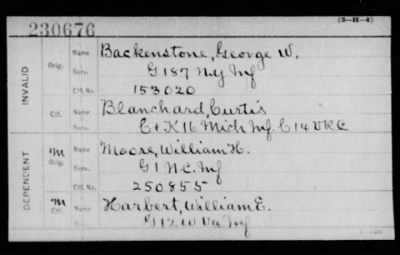 (3-H-4)
230676
INVALID
Orig.
Name Backenstone, George W.
Serv. G 187 N.Y. Inf
Ctf. No. 153020
Ctf. Name Blanchard, Curtis
Serv. E & K 16 Mich Inf. C 14 V.R.C
DEPENDENT
M Orig.
Name Moore, William H.
Serv. G 1 N.C. Inf
Ctf. No. 250855
M Ctf. Name Harbert, William E.
Serv. W Va Inf